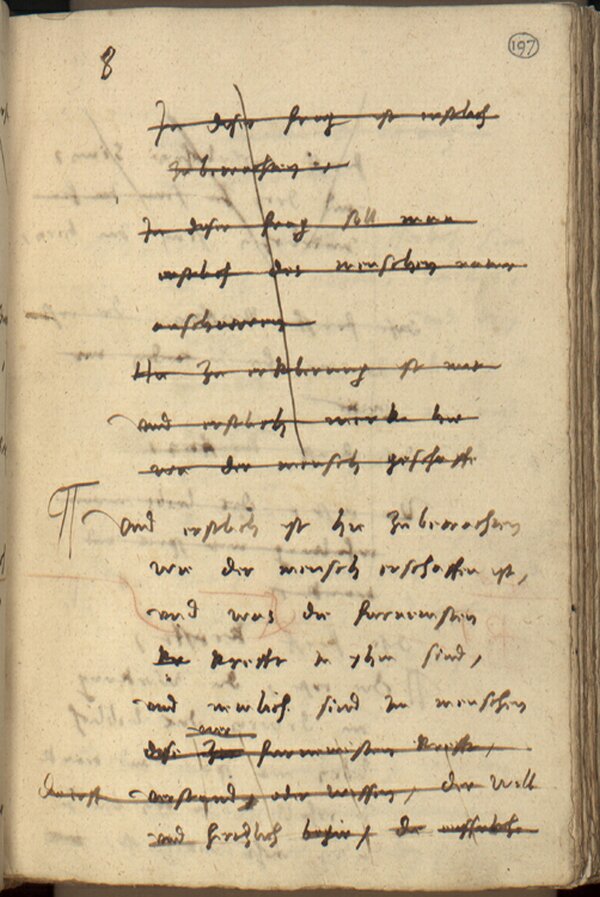 8
197
In diser frag ist erstlich
zu betrachten
In diser frag soll man
erstlich des menschen natur
anschawen
zu erklerung ist
und erstlich merk hie
wie der mensch geschaffe
und erstlich ist hie zu betrachten
wie der mensch erschaffen ist,
und was die furnemsten
krefft in yhm sind,
und nemlich sind im menschen
dise furnemsten krefft,
verstand, oder wissen, der will
und hertzlich begir, die